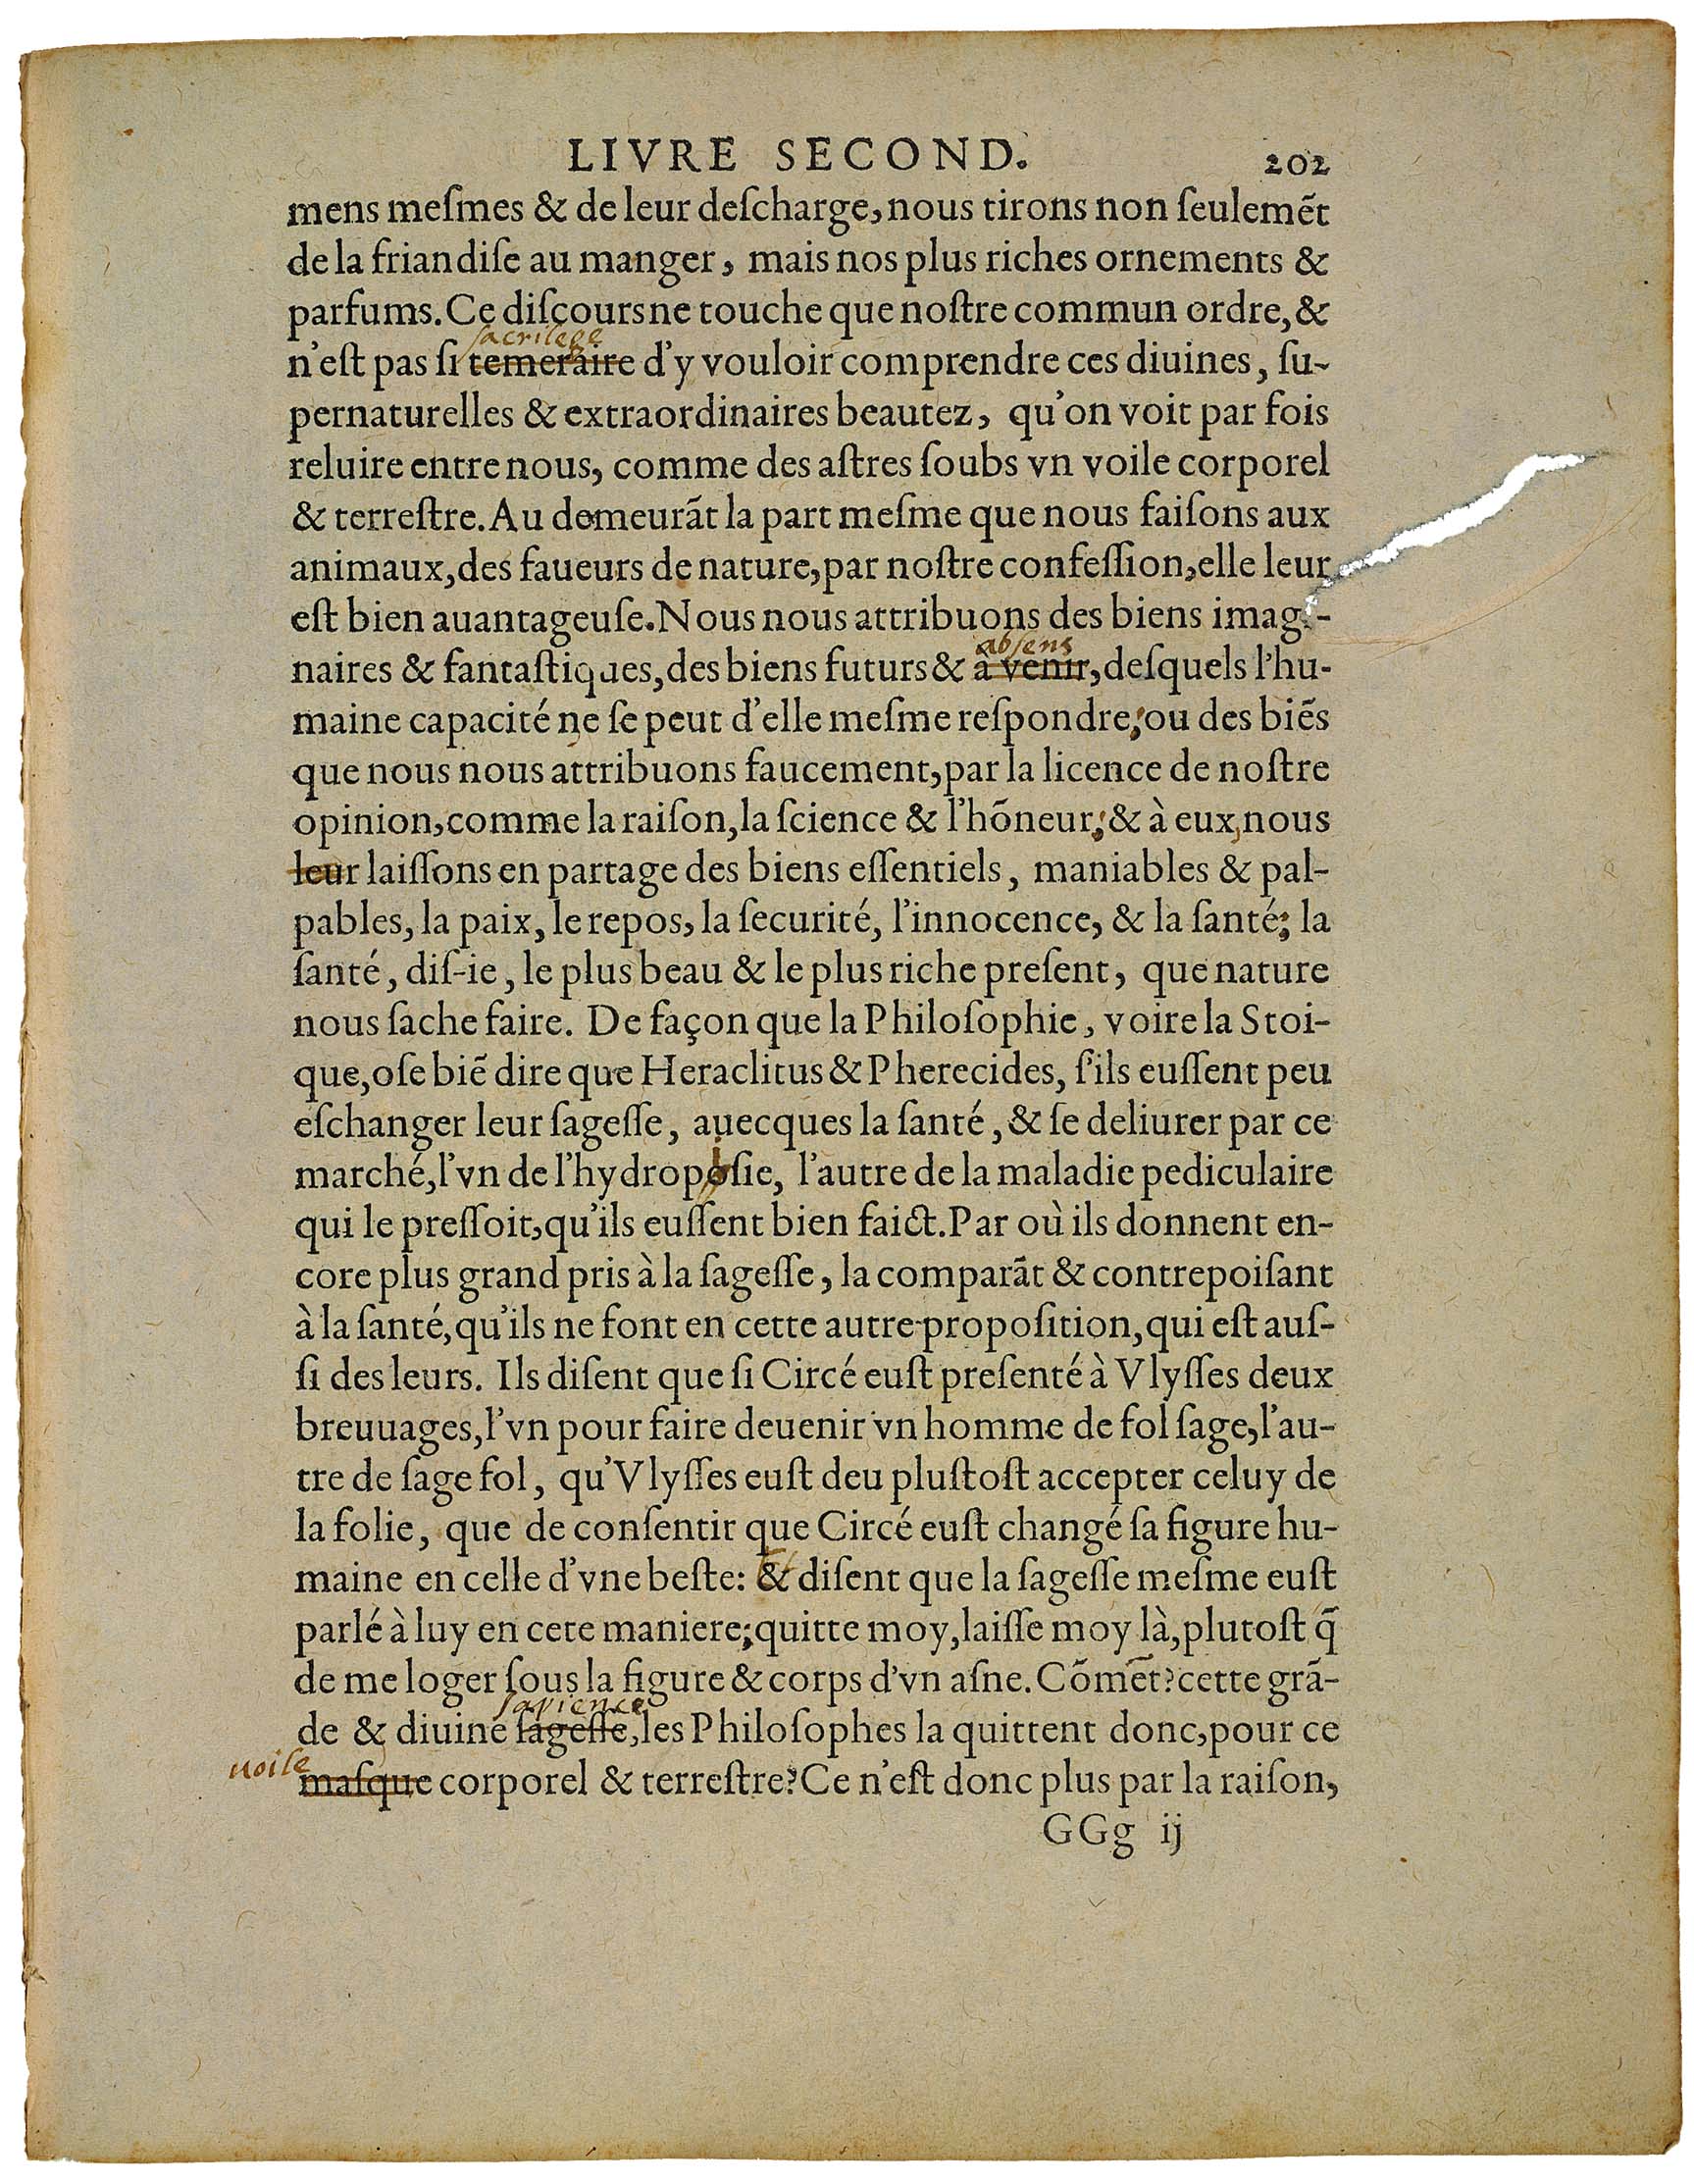 LIVRE SECOND. 202
mens meſmes & de leur deſcharge, nous tirons non ſeulemẽt
de la friandiſe au manger, mais nos plus riches ornements &
parfums. Ce diſcours ne touche que noſtre commun ordre, &
sacrilege
n'eſt pas ſi temeraire d'y vouloir comprendre ces diuines, ſu-
pernaturelles & extraordinaires beautez, qu'on voit par fois
reluire entre nous, comme des aſtres ſoubs vn voile corporel
& terreſtre. Au demeurãt la part meſme que nous faiſons aux
animaux, des faueurs de nature, par noſtre confeſſion, elle leur
eſt bien auantageuſe. Nous nous attribuons des biens imagi-
absens
naires & fantaſtiques, des biens futurs & à venir, deſquels l'hu-
maine capacité ne ſe peut d'elle meſme reſpondre; ou des biẽs
que nous nous attribuons faucement, par la licence de noſtre
opinion, comme la raiſon, la ſcience & l'hõneur; & à eux, nous
leur laiſſons en partage des biens eſſentiels, maniables & pal-
pables, la paix, le repos, la ſecurité, l'innocence, & la ſanté; la
ſanté, diſ-ie, le plus beau & le plus riche preſent, que nature
nous ſache faire. De façon que la Philoſophie, voire la Stoi-
que, oſe biẽ dire que Heraclitus & Pherecides, ſ'ils euſſent peu
eſchanger leur ſageſſe, auecques la ſanté, & ſe deliurer par ce
marché, l'vn de l'hydropoſie, l'autre de la maladie pediculaire
qui le preſſoit, qu'ils euſſent bien faict. Par où ils donnent en-
core plus grand pris à la ſageſſe, la comparãt & contrepoiſant
à la ſanté, qu'ils ne font en cette autre propoſition, qui eſt auſ-
ſi des leurs. Ils diſent que ſi Circé euſt preſenté à Vlyſſes deux
breuuages, l'vn pour faire deuenir vn homme de fol ſage, l'au-
tre de ſage fol, qu'Vlyſſes euſt deu pluſtoſt accepter celuy de
la folie, que de conſentir que Circé euſt changé ſa figure hu-
maine en celle d'vne beſte: & diſent que la ſageſſe meſme euſt
parlé à luy en cete maniere; quitte moy, laiſſe moy là, plutoſt q̃
de me loger ſous la figure & corps d'vn aſne. Cõmẽt? cette grã-
sapience
de & diuine ſageſſe, les Philoſophes la quittent donc, pour ce
uoile
maſque corporel & terreſtre? Ce n'eſt donc plus par la raiſon,
GGg ij